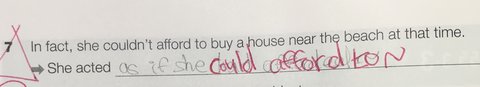 7 In fact, she couldn't afford to buy a house near the beach at that time.
➡ She acted as if she could afford to N